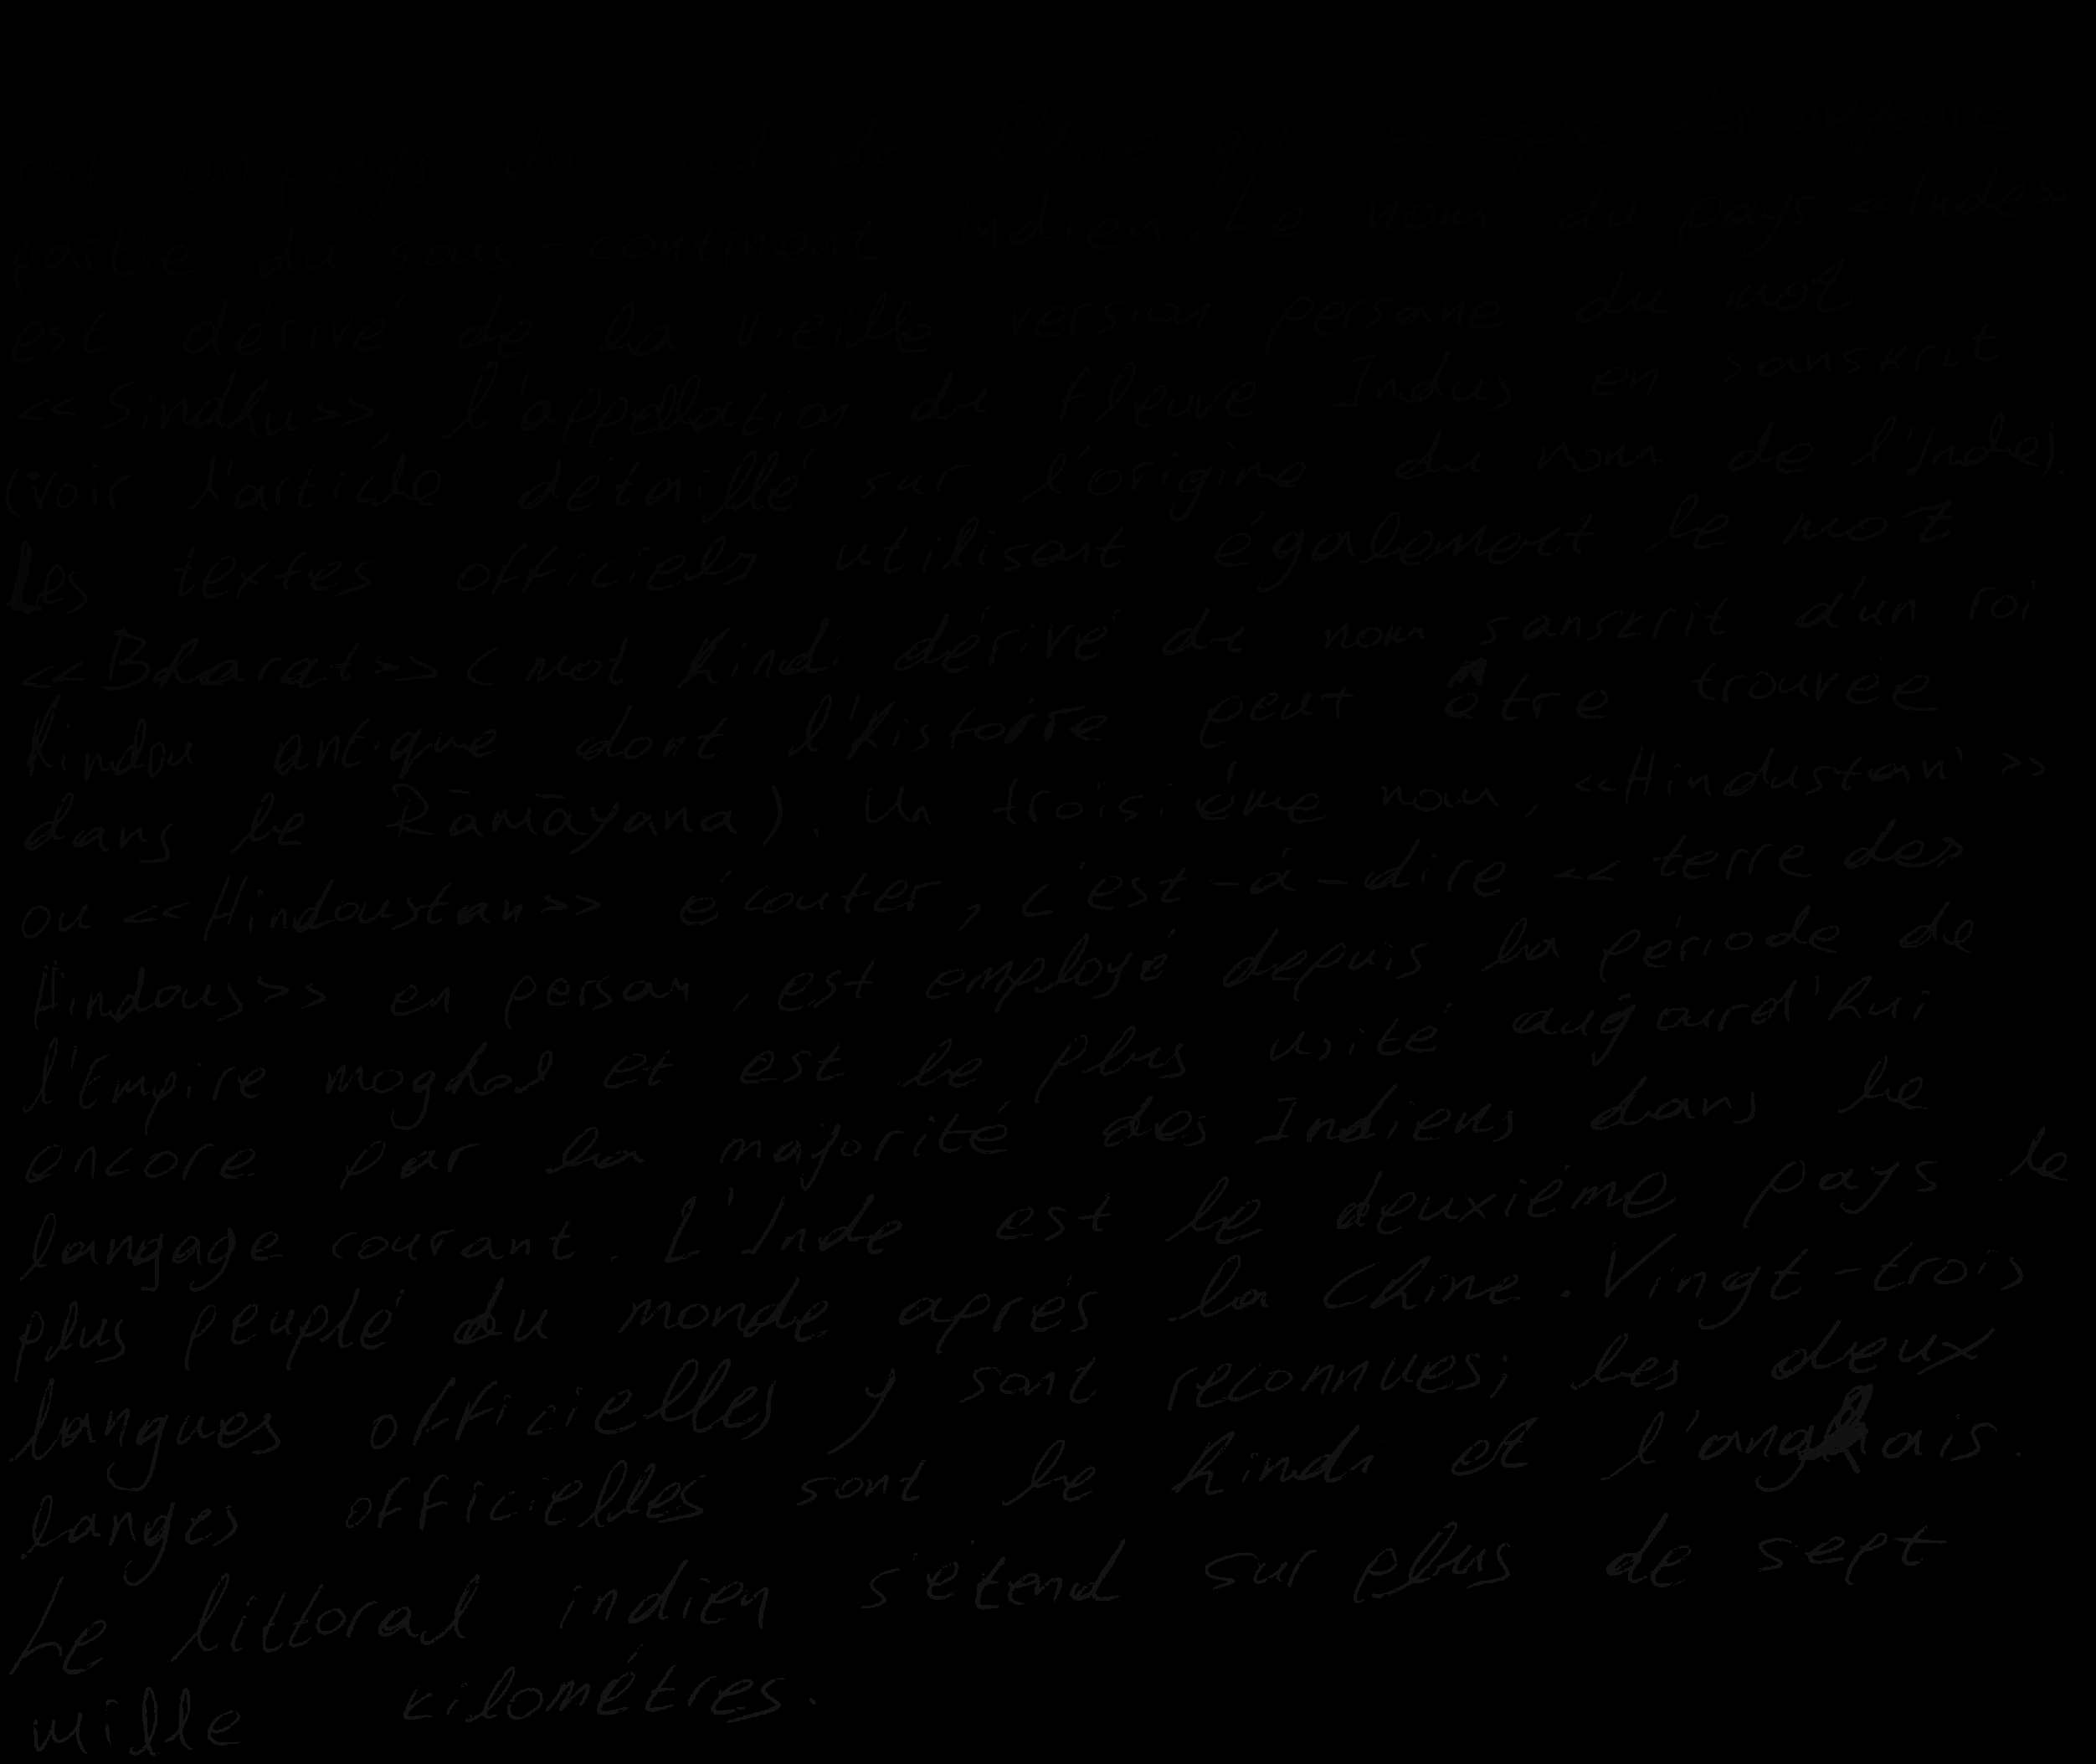 est un pays du sud de l'Asie qui occupe la majeure
partie du sous-continent indien. Le nom du pays «Inde»
est dérivé de la vieille version persane du mot
«Sindhu», l'appellation du fleuve Indus en sanskrit
(voir l'article détaillé sur l'origine du nom de l'Inde).
Les textes officiels utilisent également le mot
«Bharat» (mot hindi dérivé du nom sanskrit d'un roi
hindou antique dont l'histoire peut être trouvée
dans le Rāmāyana). Un troisième nom, «Hindustan»
ou «Hindoustan» écouter, c'est-à-dire « terre des
Hindous» en persan, est employé depuis la période de
l'Empire moghol et est le plus usité aujourd'hui
encore par la majorité des Indiens dans le
langage courant. L'Inde est le deuxième pays le
plus peuplé du monde après la Chine. Vingt-trois
langues officielles y sont reconnues; les deux
langes officielles sont le hindi et l'anglais.
Le littoral indien s'étend sur plus de sept
mille kilomètres.